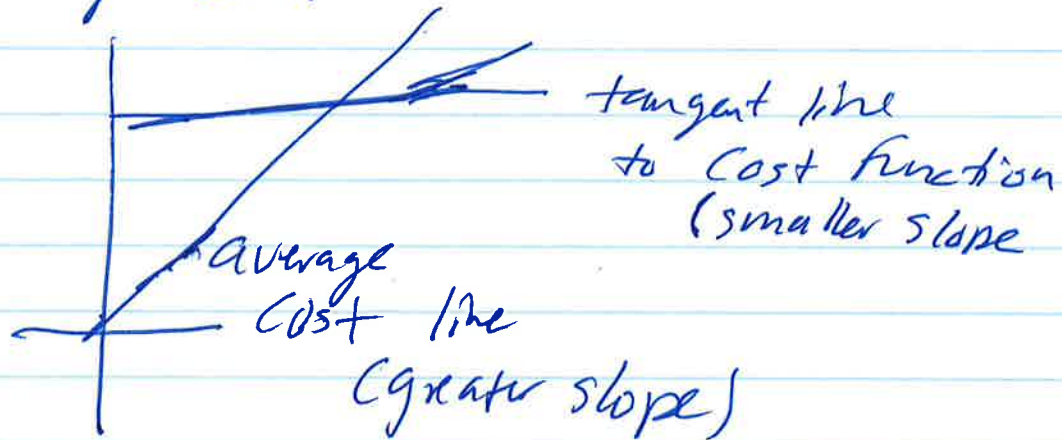 tangent line
to Cost function
(smaller slope
average
Cost line
(greater slope)